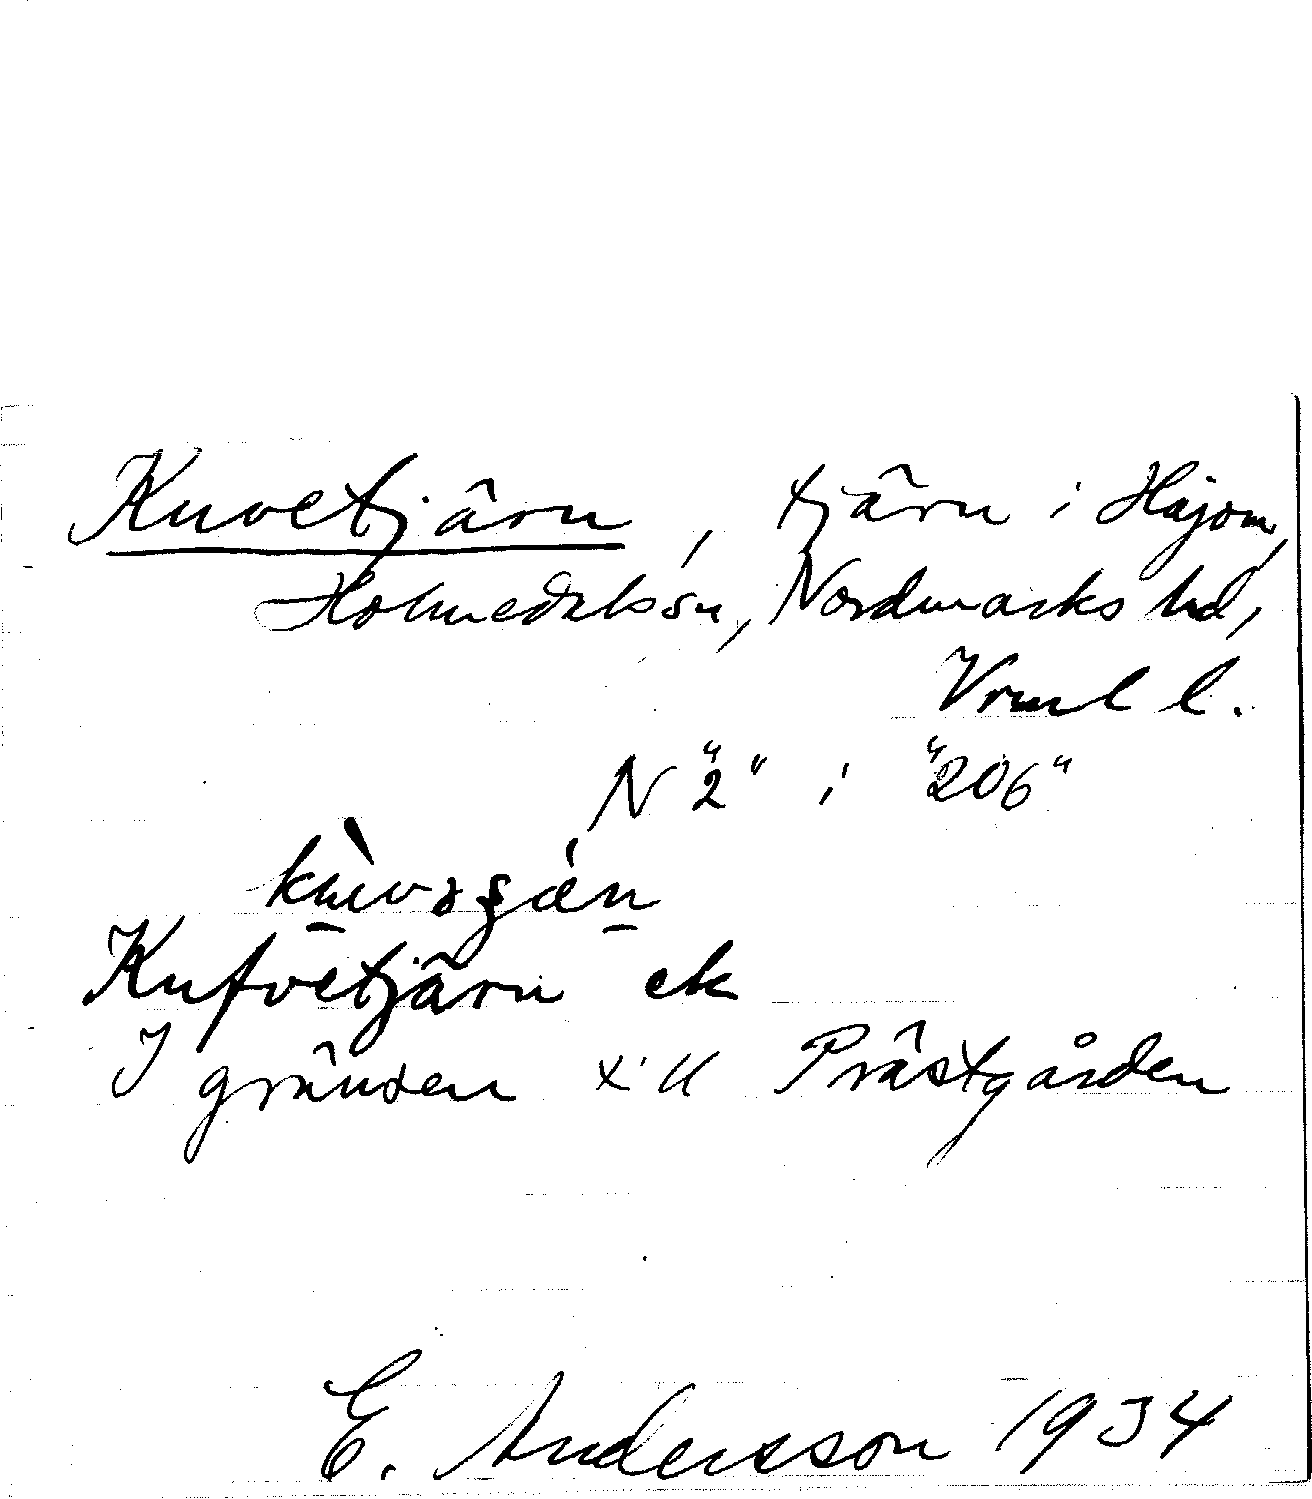 Kuvetjärn, tjärn i Håjom,
Holmedals sn, Nordmarks hd,
Vrml l.
N "2" i "206"
Kufvetjärn ek
I gränsen till Prästgården
E. Andersson 1934